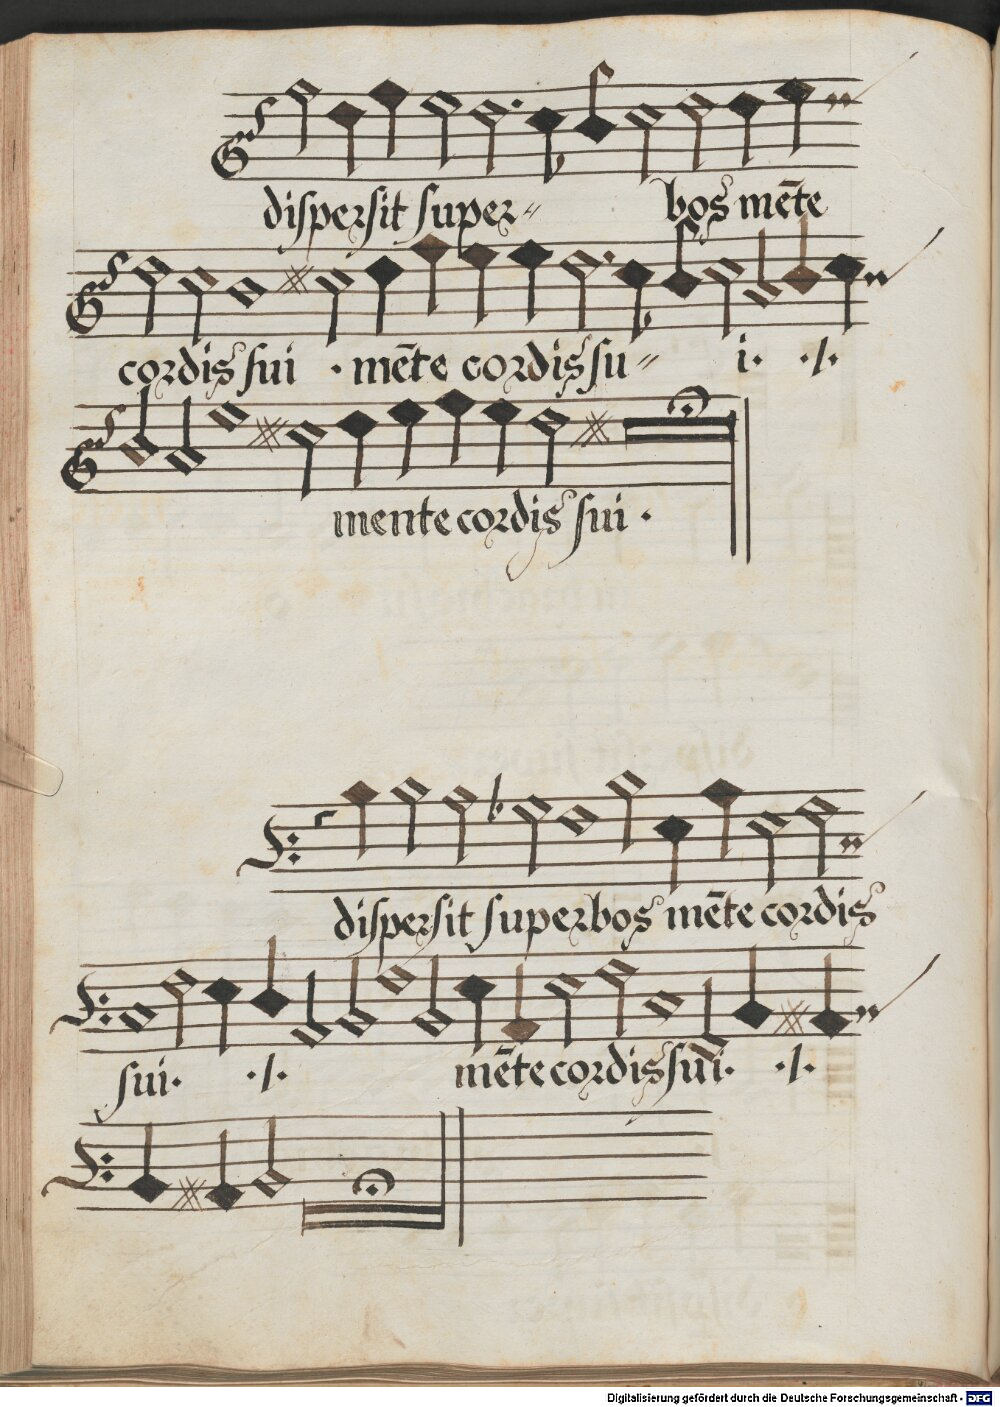 dispersit super- bos mēte
cordis sui · mēte cordis su- i· ·/·
mente cordis sui ·
dispersit superbos mēte cordis
sui· ·/· mēte cordis sui· ·/·
Digitalisierung gefördert durch die Deutsche Forschungsgemeinschaft - DFG